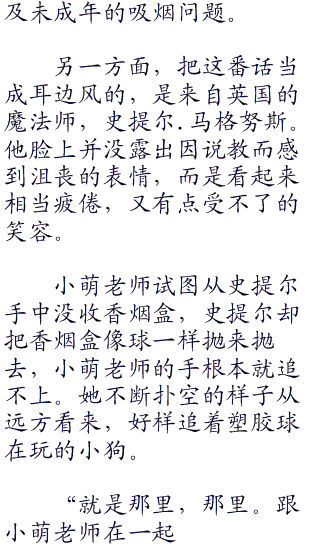 及未成年的吸烟问题。
另一方面，把这番话当
成耳边风的，是来自英国的
魔法师，史提尔．马格努斯。
他脸上并没露出因说教而感
到沮丧的表情，而是看起来
相当疲倦，又有点受不了的
笑容。
小萌老师试图从史提尔
手中没收香烟盒，史提尔却
把香烟盒像球一样抛来抛
去，小萌老师的手根本就追
不上。她不断扑空的样子从
远方看来，好样追着塑胶球
在玩的小狗。
“就是那里，那里。跟
小萌老师在一起